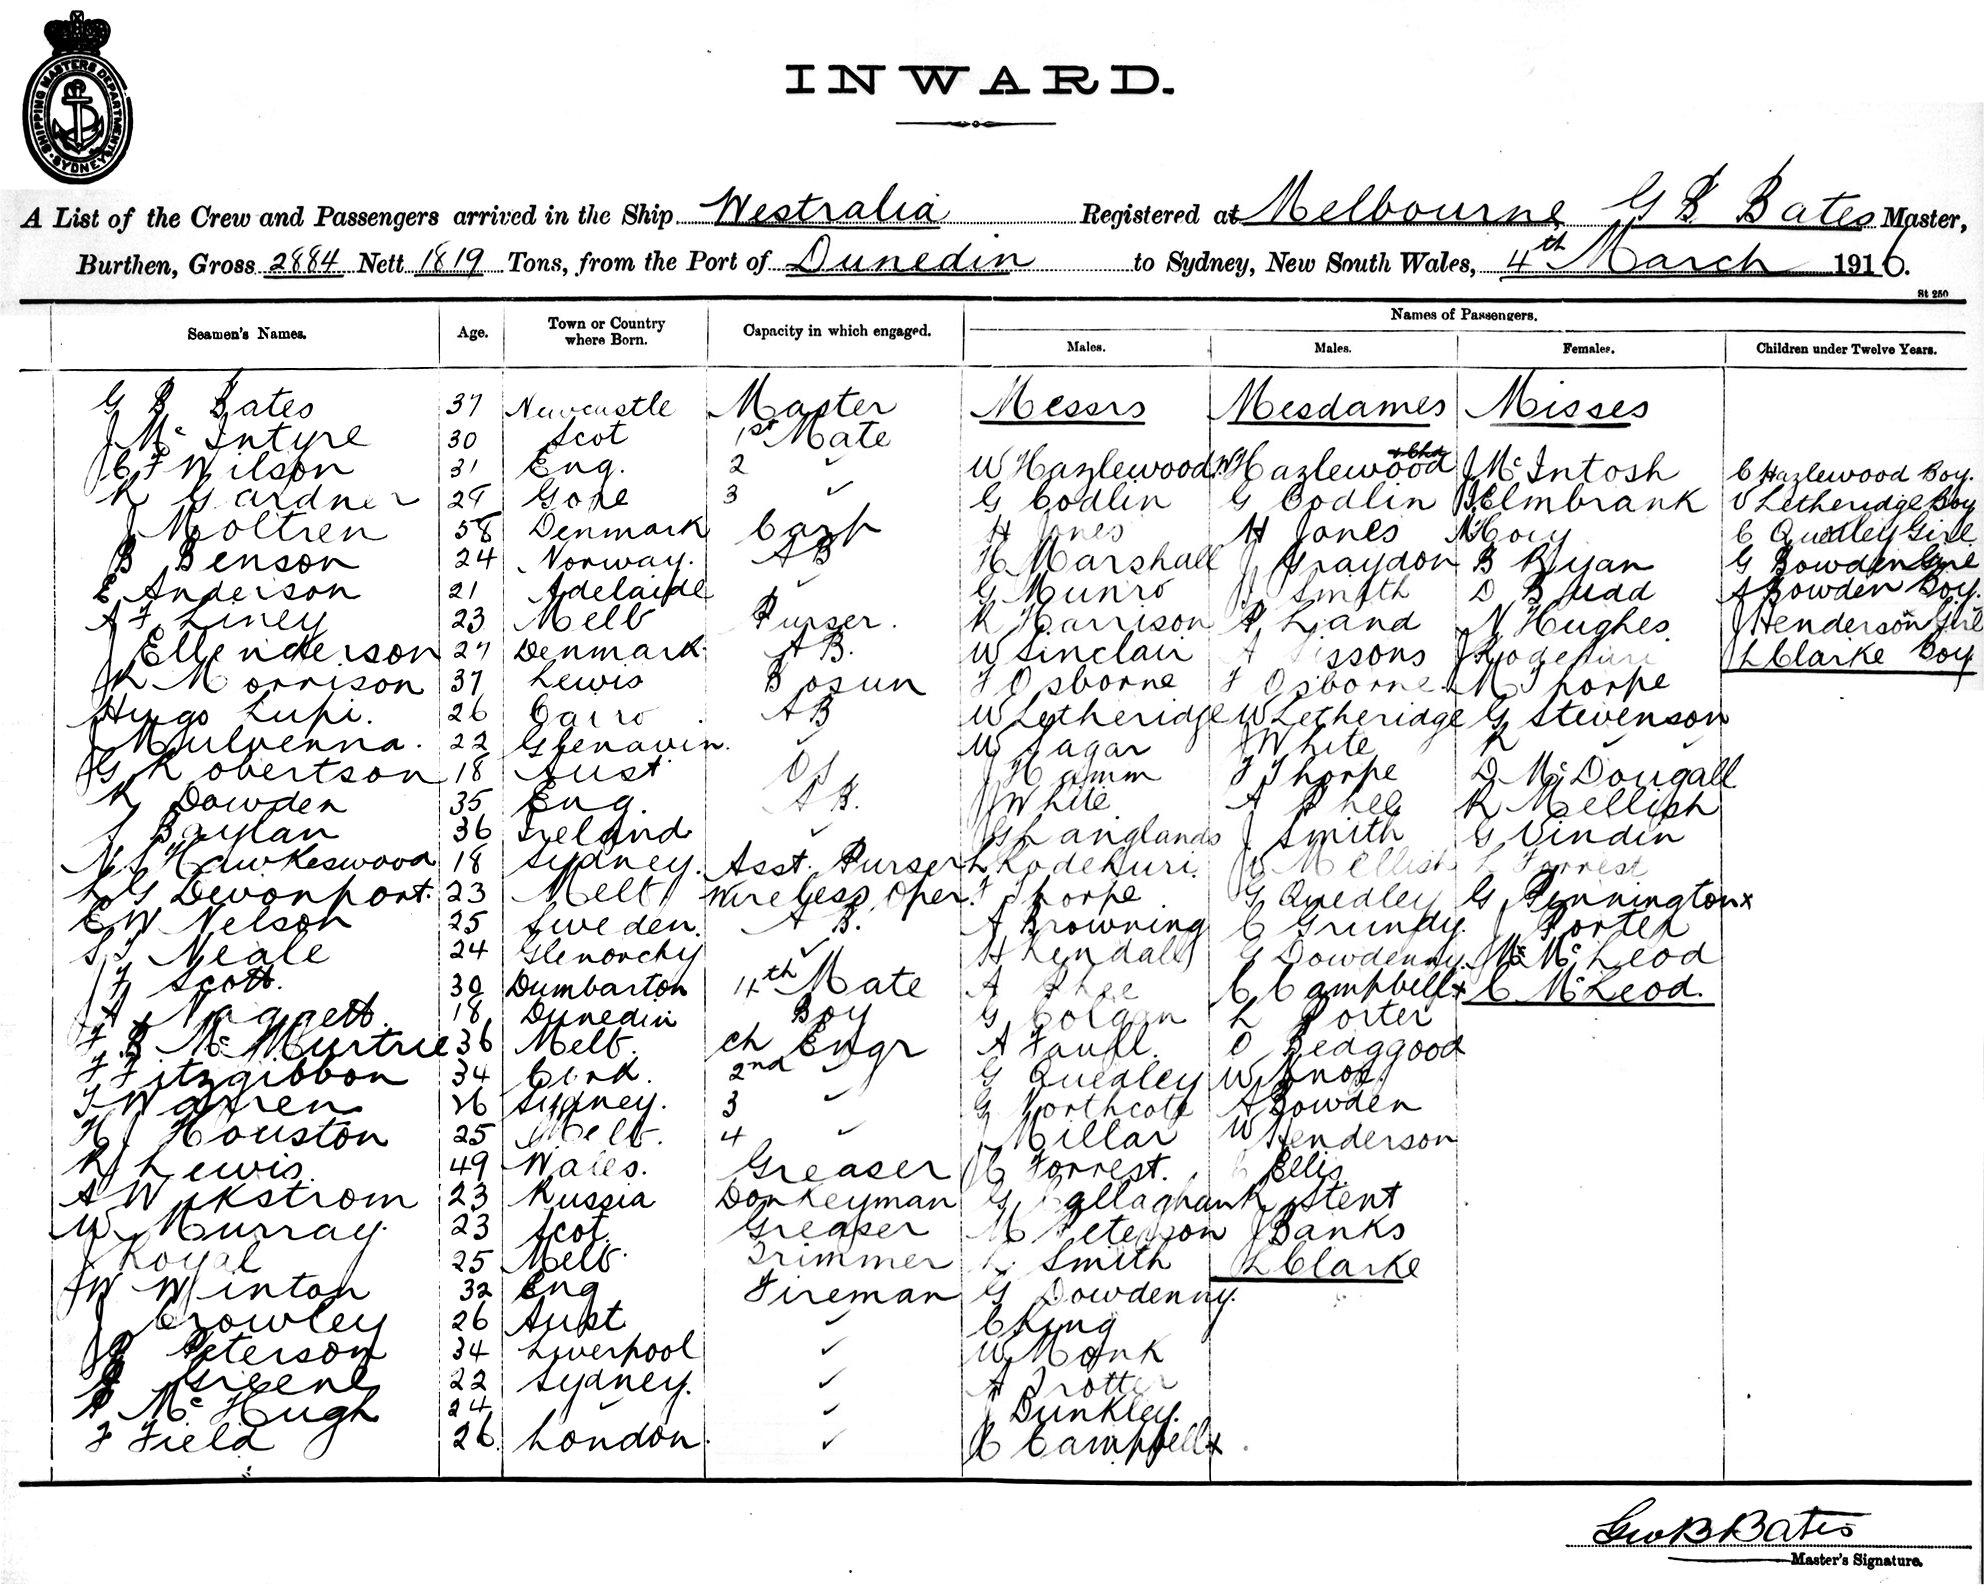 SHIPPING MASTERS DEPARTMENT SYDNEY
INWARD.
A List of the Crew and Passengers arrived in the Ship Westralia Registered at Melbourne G B Bates Master,
Burthen, Gross 2884 Nett 1819 Tons, from the Port of Dunedin to Sydney, New South Wales, 4th March 1916.
St 250
Seamen's Names. Age. Town or Country where Born. Capacity in which engaged. Names of Passengers.
Males. Males. Females. Children under Twelve Years.
G B Bates 37 Newcastle Master Messrs Mesdames Misses
J McIntyre 30 Scot 1st Mate
C F Wilson 31 Eng. 2 ✓ W Hazlewood W Hazlewood J McIntosh C Hazlewood Boy.
R Gardner 29 Gore 3 ✓ G Codlin G Codlin Elmbrank V Letheridge Boy
J Moltren 58 Denmark Carp H Jones H Jones Hoiy C Quedley Girl
B Benson 24 Norway. AB H Marshall J Graydon B Ryan G Bowden Girl
E Anderson 21 Adelaide ✓ G Munro J Smith D Budd A Bowden Boy.
A F Liney 23 Melb Purser. R Harrison P Land N Hughes J Henderson Girl
J Ellenderson 27 Denmark. AB. W Sinclair A Sissons J L Clarke Boy
R Morrison 37 Lewis Bosun F Osborne F Osborne M Thorpe
Hugo Lupi. 26 Cairo AB W Letheridge W Letheridge G Stevenson
J Mulvenna. 22 Glenavin. ✓ W Sagar J White R ✓ ✓
G Robertson 18 Aust OS J Hamm F Thorpe D McDougall
R Dowden 35 Eng. AB. J White A Rhee R Mellish
J Boylan 36 Ireland ✓ G Langlands J Smith G Vindin
N J Hawkeswood 18 Sydney. Asst. Purser L Rodekuri. Mellish L Forrest
L G Devonport. 23 Melb Wireless Oper. F Thorpe G Quedley G Pennington x
E W Nelson 25 Sweden. AB. A Browning C Grundy. J Porter
S J Neale 24 Glenorchy ✓ H Kendall G Dowdenny. M McLeod
J F Scott. 30 Dumbarton 4th Mate A Rhee C Campbell x C McLeod.
A Naggett 18 Dunedin Boy G Colgan L Porter
F B McMurtrie 36 Melb. Ch Engr A Faull. O Beaggood
F Fitzgibbon 34 Cork. 2nd ✓ G Quedley W Knox.
T Warren 26 Sydney. 3 ✓ G Northcote A Bowden
H J Houston 25 Melb. 4 ✓ J Millar W Henderson
R J Lewis. 49 Wales. Greaser C Forrest. C Ellis
A Wikstrom 23 Russia Donkeyman G Callaghan R Stent
W Murray. 23 Scot. Greaser M Peterson J Banks
J Royal 25 Melb. Trimmer L. Smith L Clarke
J W Winton 32 Eng Fireman G Dowdenny.
J Crowley 26 Aust ✓ C King
J P Peterson 34 Liverpool ✓ W Monk
J Greene 22 Sydney. ✓ A Trotter
P McHugh 24 ✓ ✓ J Dunkley.
F Field 26. London. ✓ C Campbell x
Geo B Bates
Master's Signature.